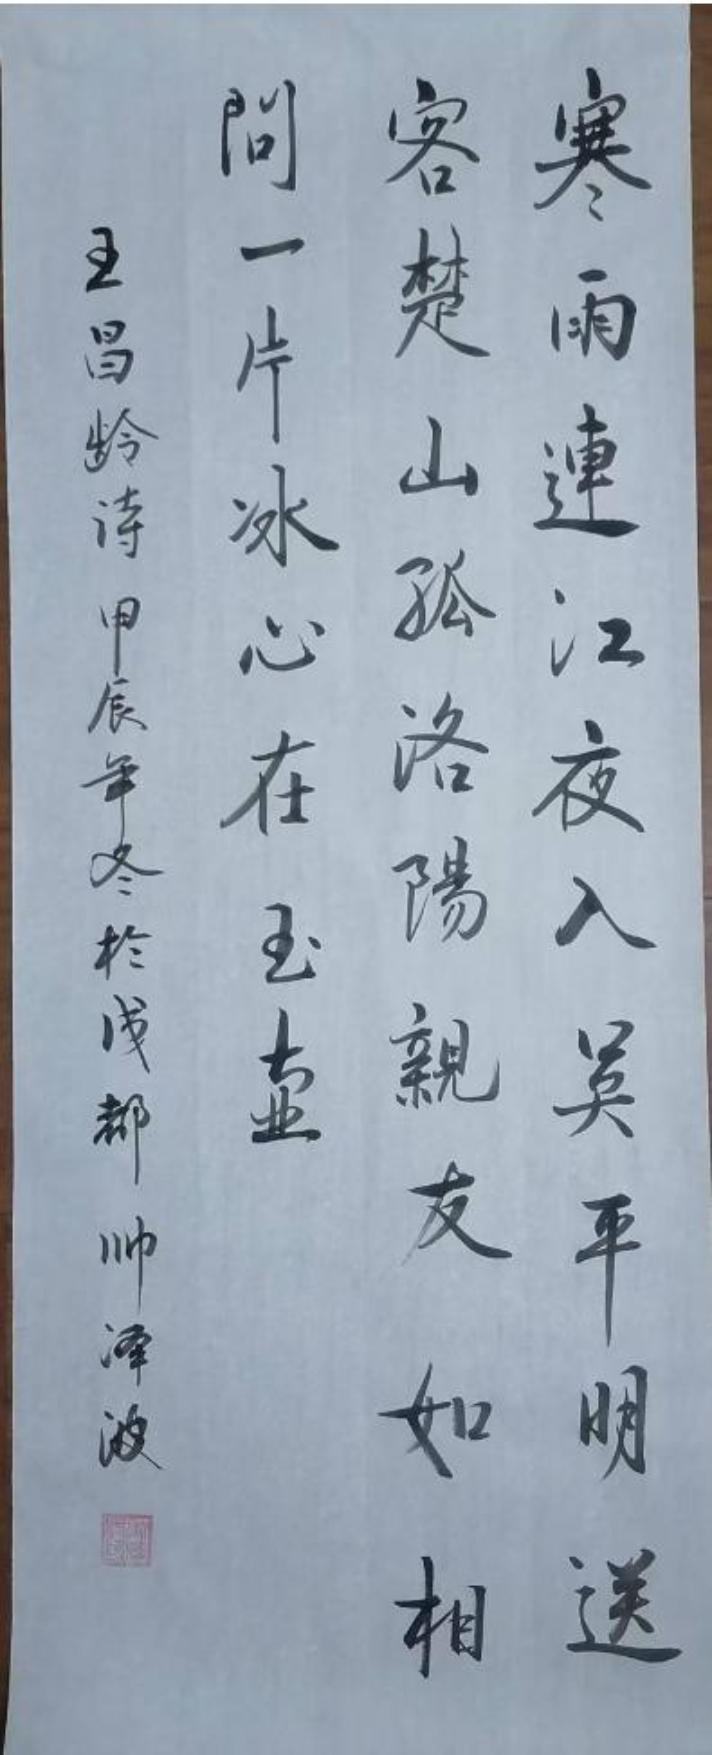 寒雨連江夜入吴平明送
客楚山孤洛陽親友如相
問一片冰心在玉壺
王昌龄诗甲辰年冬於成都帅泽波